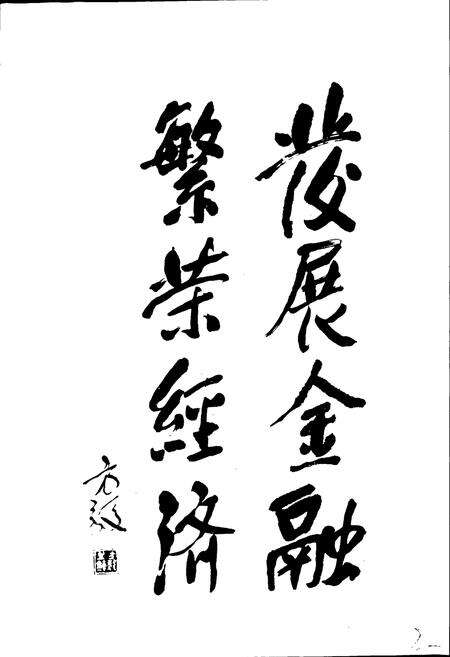 發展金融
繁荣經济
方毅